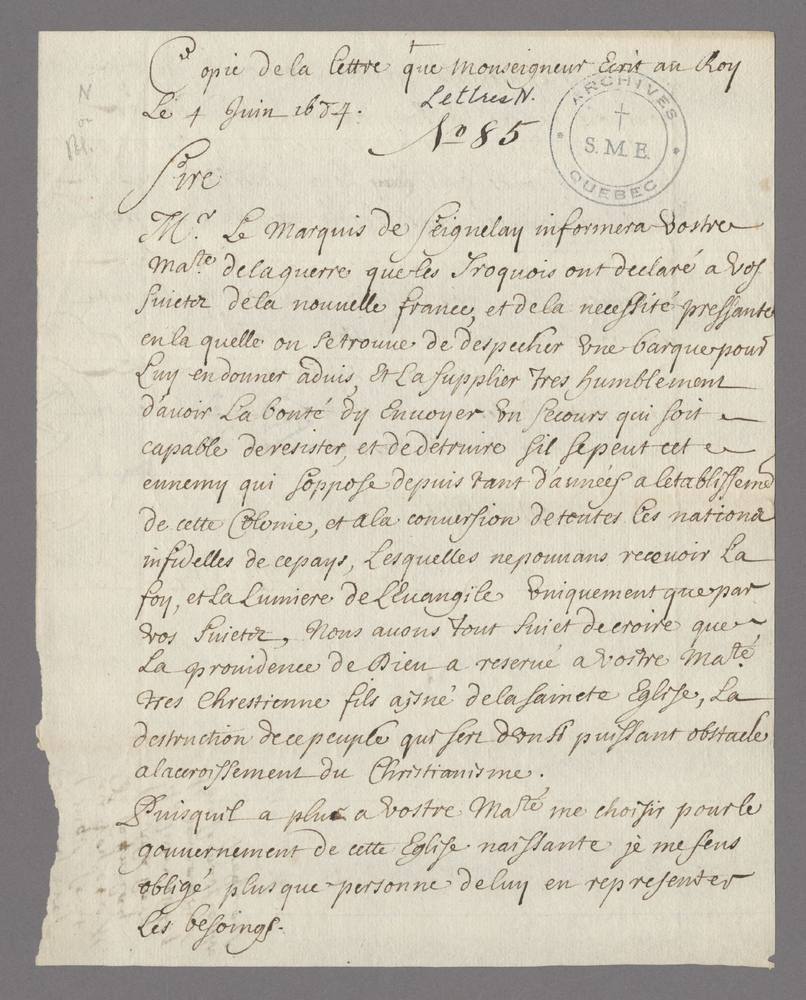 Copie de la lettre que Monseigneur Ecrit au Roy
Le 4 Juin 1684.
Lettres N.
No 85
ARCHIVES
S. M. E.
QUEBEC
N
ou
Sire
Mr. Le Marquis de Seignelay informera Vostre
Maté. de la guerre que les Iroquois ont declaré a vos
suietz de la nouvelle france, et de la necessité pressante
en la quelle on se trouve de despecher une barque pour
Luy en donner aduis, Et La supplier tres humblement
d'auoir La bonté dy Enuoyer un secours qui soit
capable de resister, et de détruire sil se peut cet
ennemy qui s'oppose depuis tant d'années a letablisseme
de cette Colonie, et a la conuersion de toutes les nations
infidelles de ce pays, Lesquelles ne pouuans receuoir La
foy, et La Lumiere de L'Euangile uniquement que par
vos suietz, Nous auons tout suiet de croire que
La prouidence de Dieu a reserué a Vostre Maté.
tres Chrestienne fils aisné de la saincte Eglise, La
destruction de ce peuple qui sert d'un si puissant obstacle
a lacroissement du Christianisme.
Puisquil a plu a Vostre Maté me choisir pour le
gouuernement de cette Eglise naissante je me sens
obligé plus que personne de luy en representer
Les besoings.